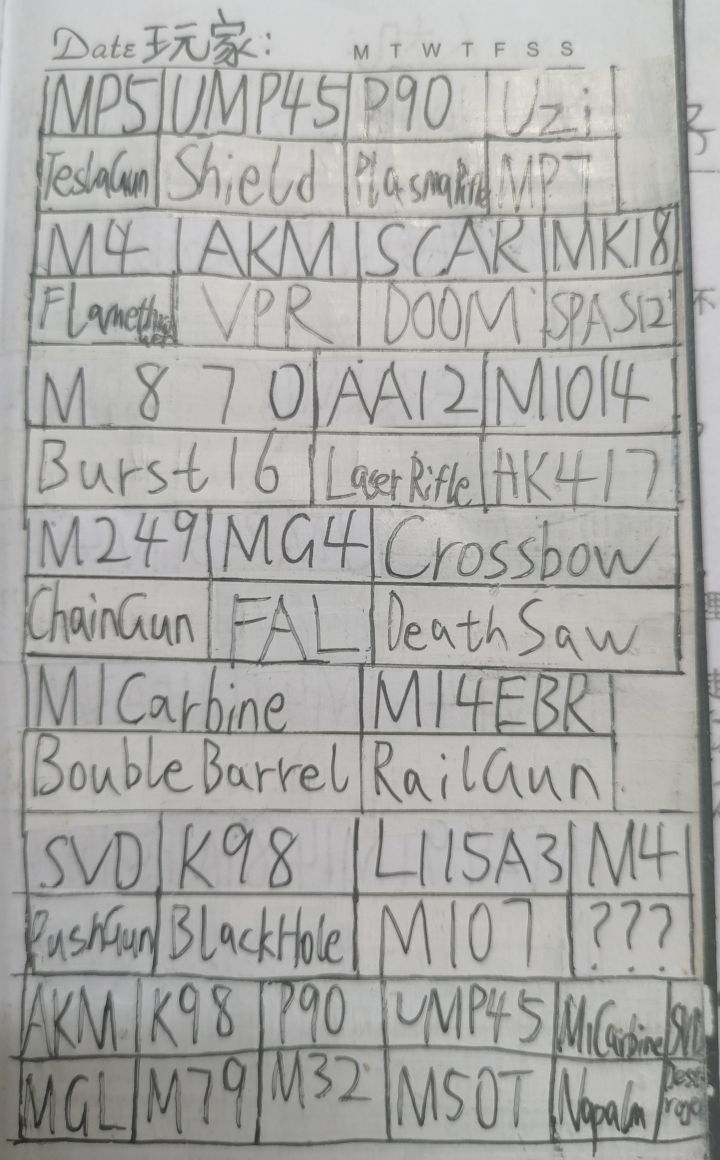 Date 玩家:
M T W T F S S
MP5 UMP45 P90 Uzi
TeslaGun Shield PlasmaRifle MP7
M4 AKM SCAR MK18
Flamethrower VPR DOOM SPAS12
M 8 7 0 AA12 M1014
Burst16 LaserRifle HK417
M249 MG4 Crossbow
ChainGun FAL DeathSaw
M1Carbine M14EBR
BoubleBarrel RailGun
SVD K98 L115A3 M4
PushGun BlackHole M107 ???
AKM K98 P90 UMP45 M1Carbine SVD
MGL M79 M32 M50T Napalm